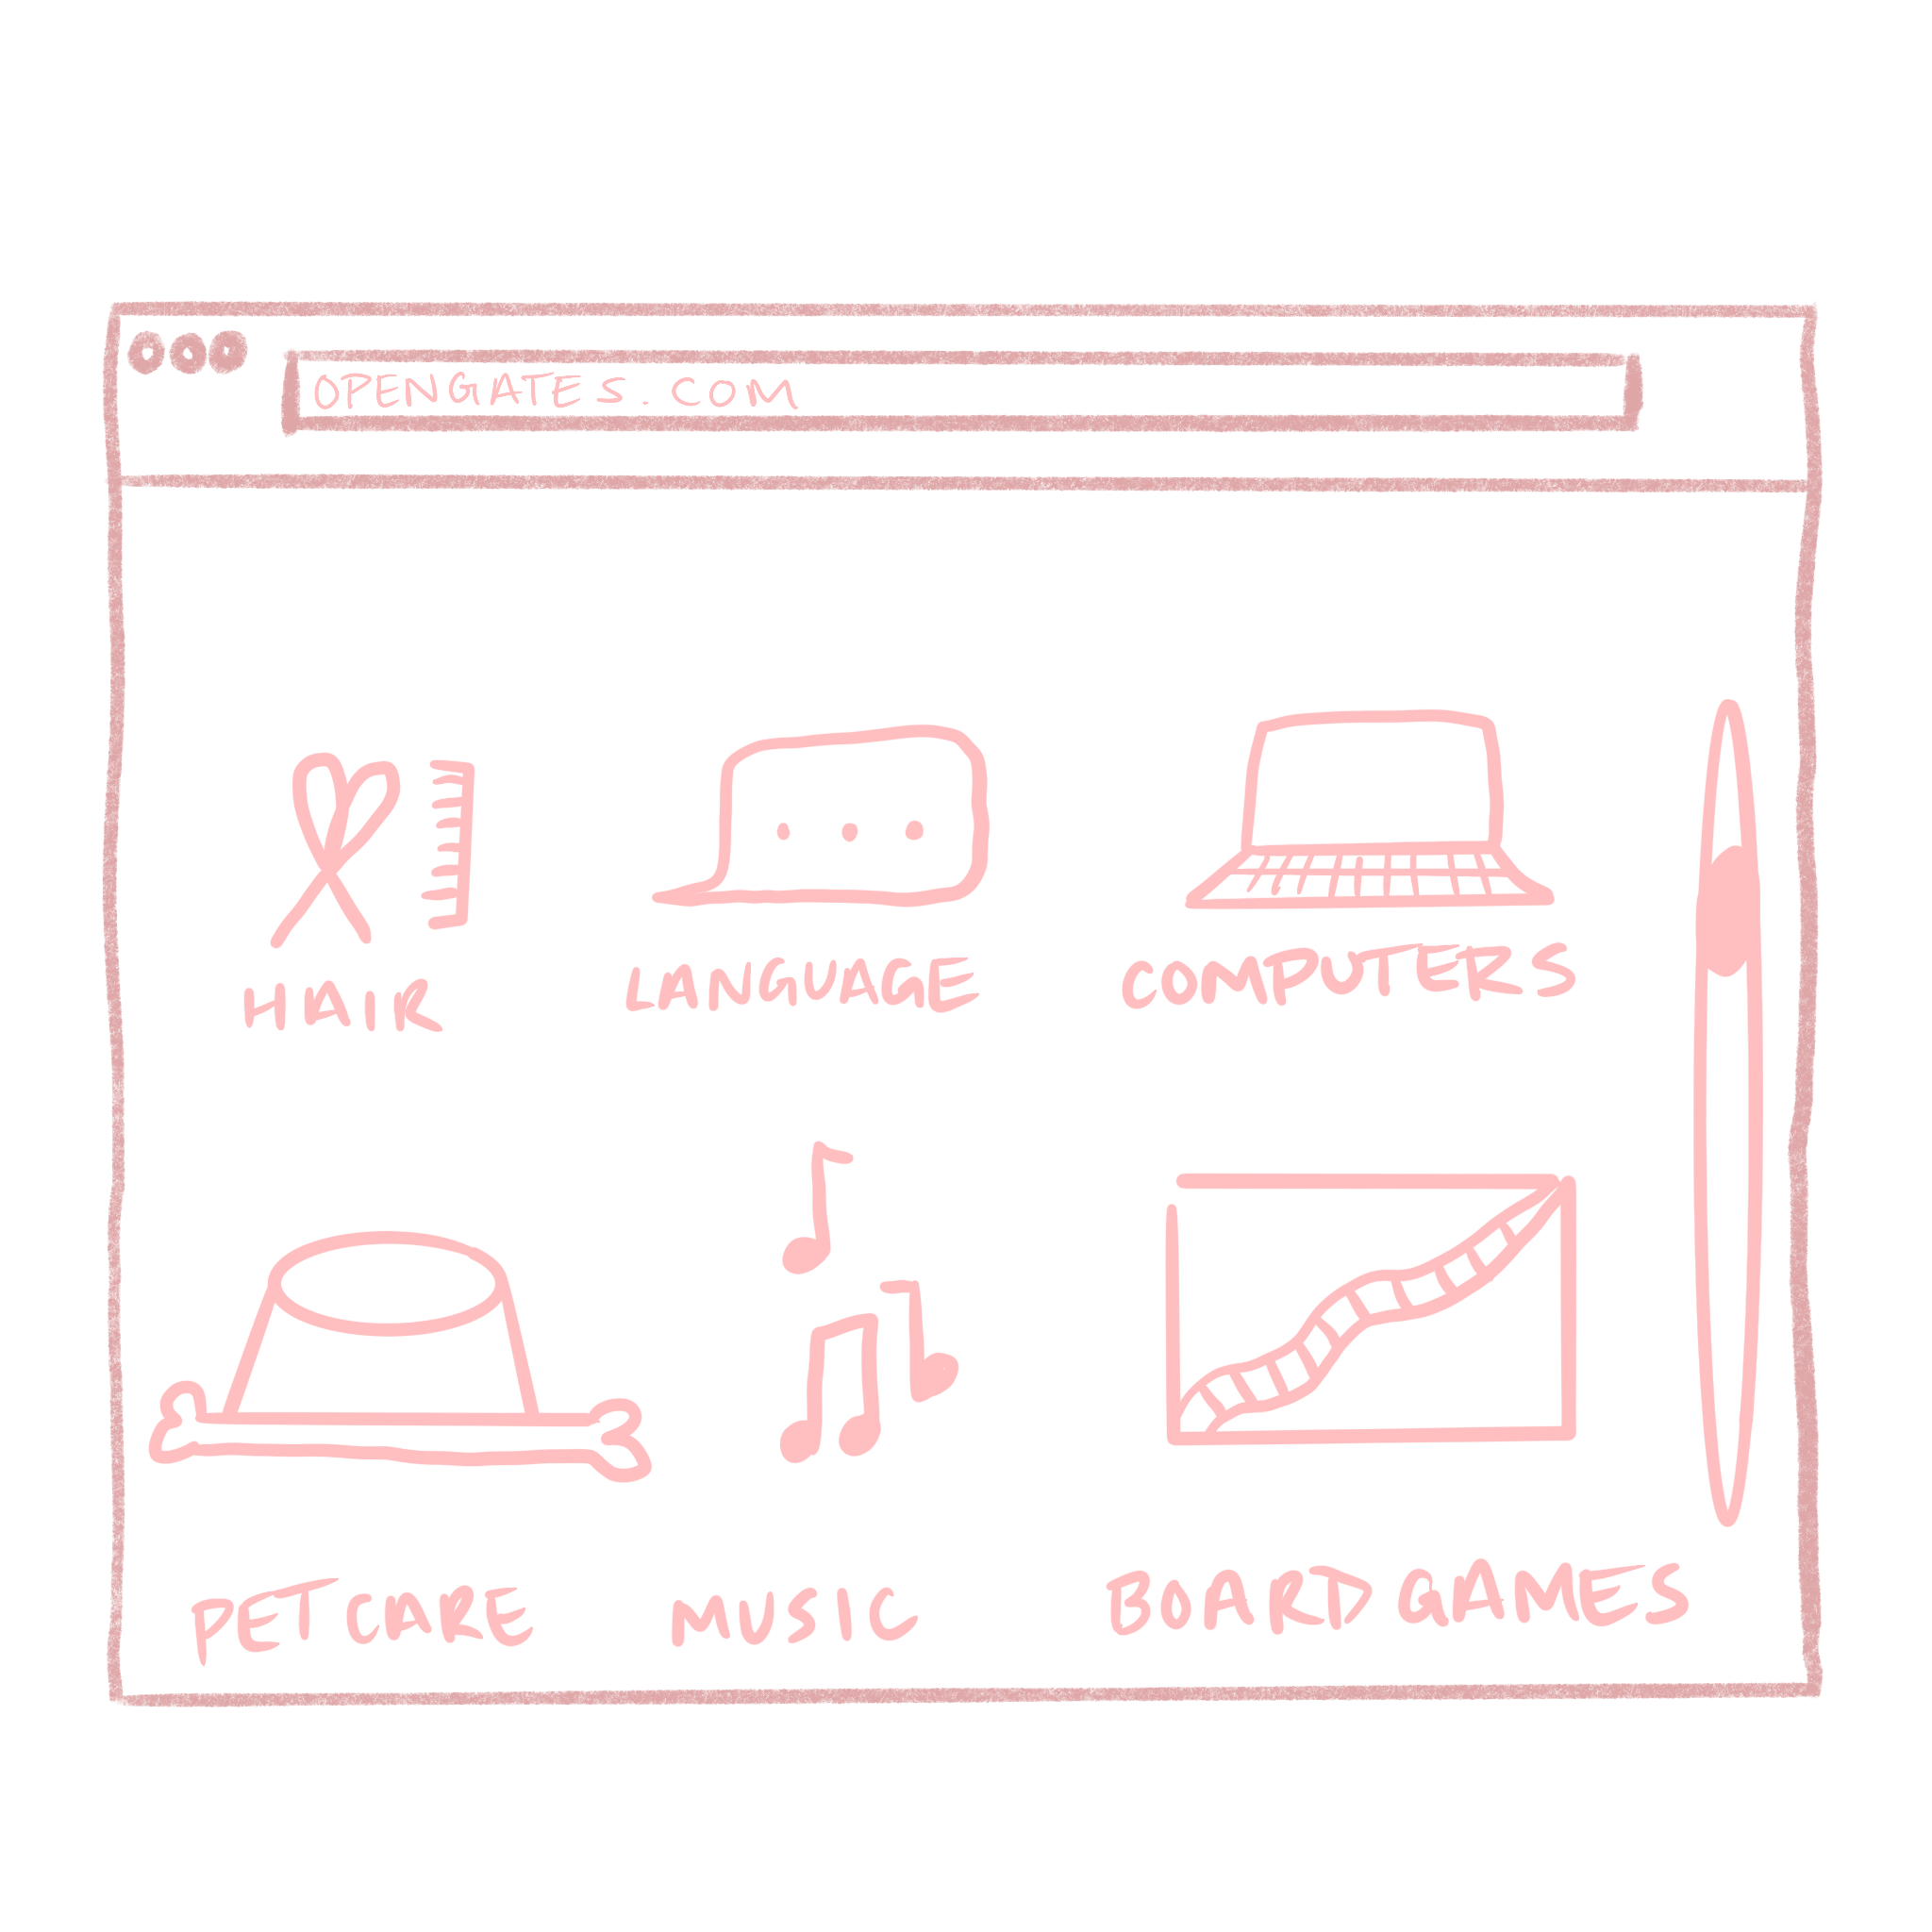 OPENGATES.COM
HAIR
LANGUAGE
COMPUTERS
PETCARE
MUSIC
BOARD GAMES